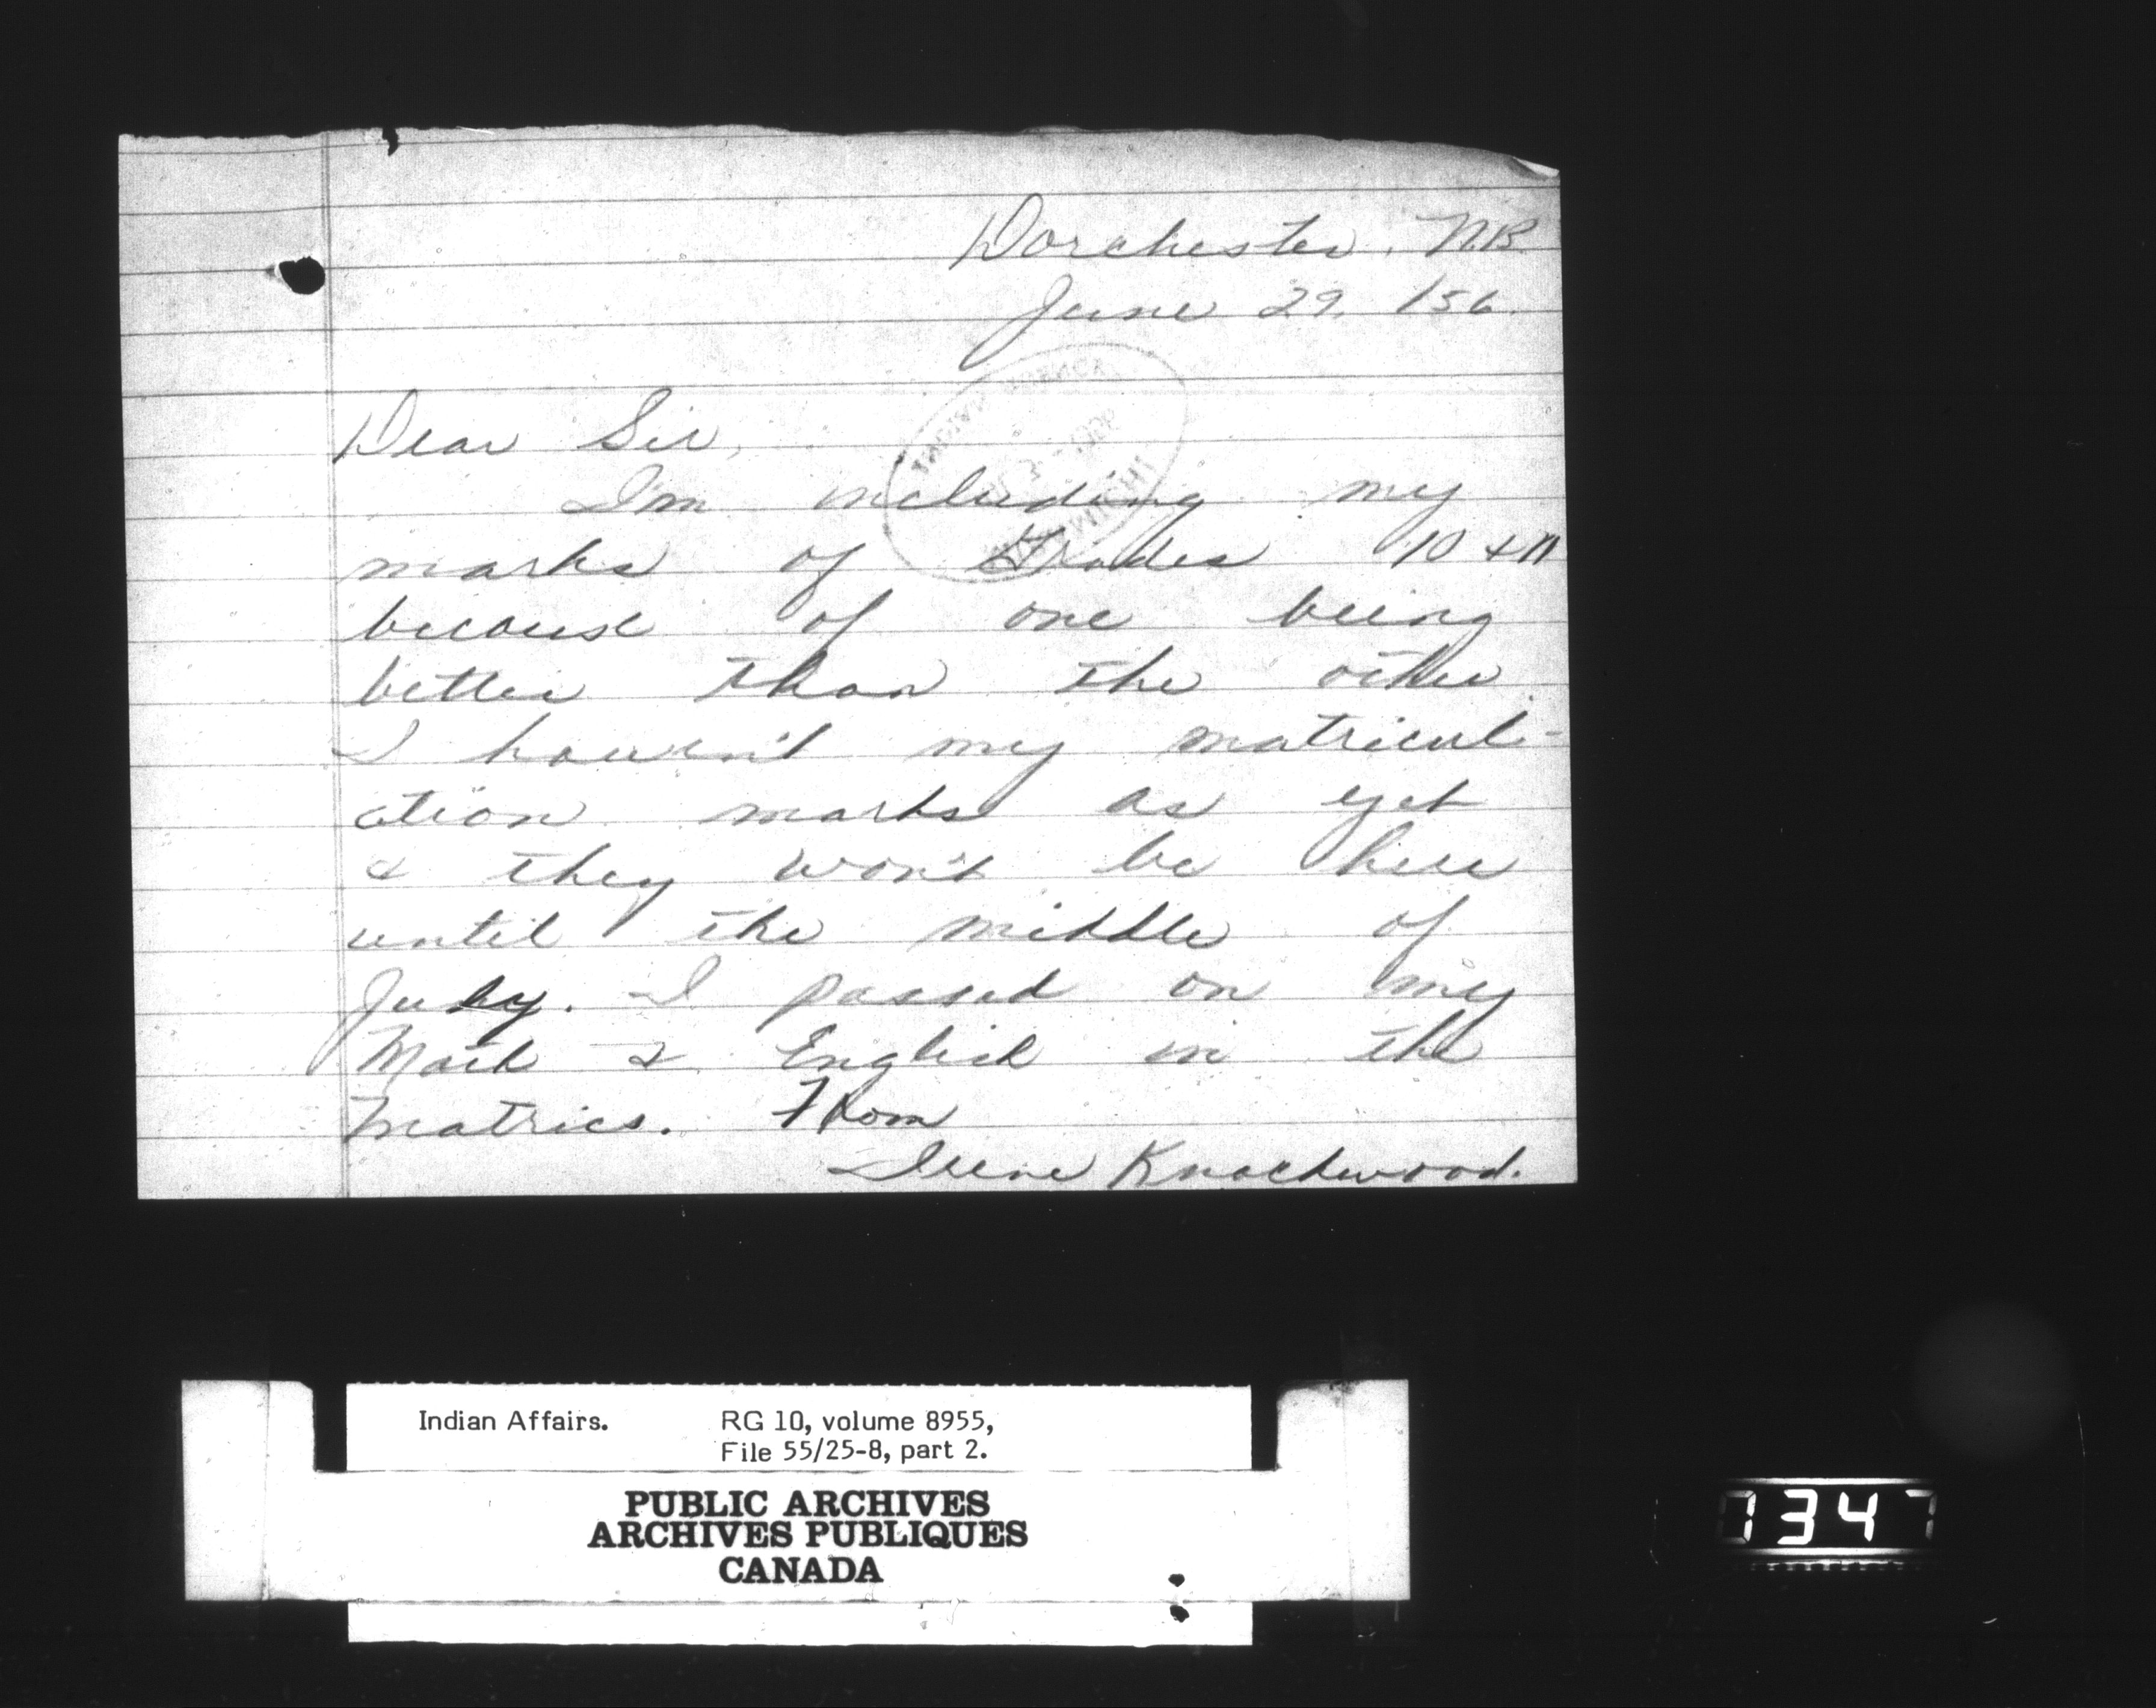 Dorchester, N.B.
June 29, /56.
Dear Sir,
I'm including my
marks of Grades 10 & 11
because of one being
better than the other.
I haven't my matricul-
ation marks as yet
& they won't be here
until the middle of
July. I passed on my
Math & English in the
matrics. From
Irene Knockwood.
Indian Affairs. RG 10, volume 8955,
File 55/25-8, part 2.
PUBLIC ARCHIVES
ARCHIVES PUBLIQUES
CANADA
7347